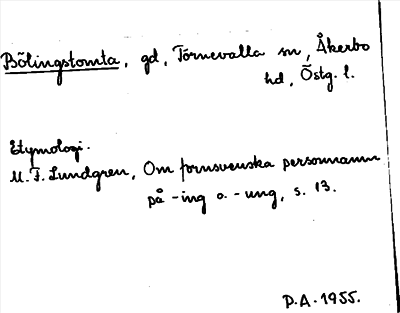 Bölingstomta, gd, Törnevalla sn, Åkerbo
hd, Östg. l.
Etymologi.
M. F. Lundgren, Om fornsvenska personnamn
på -ing o. -ung, s. 13.
P.A. 1955.